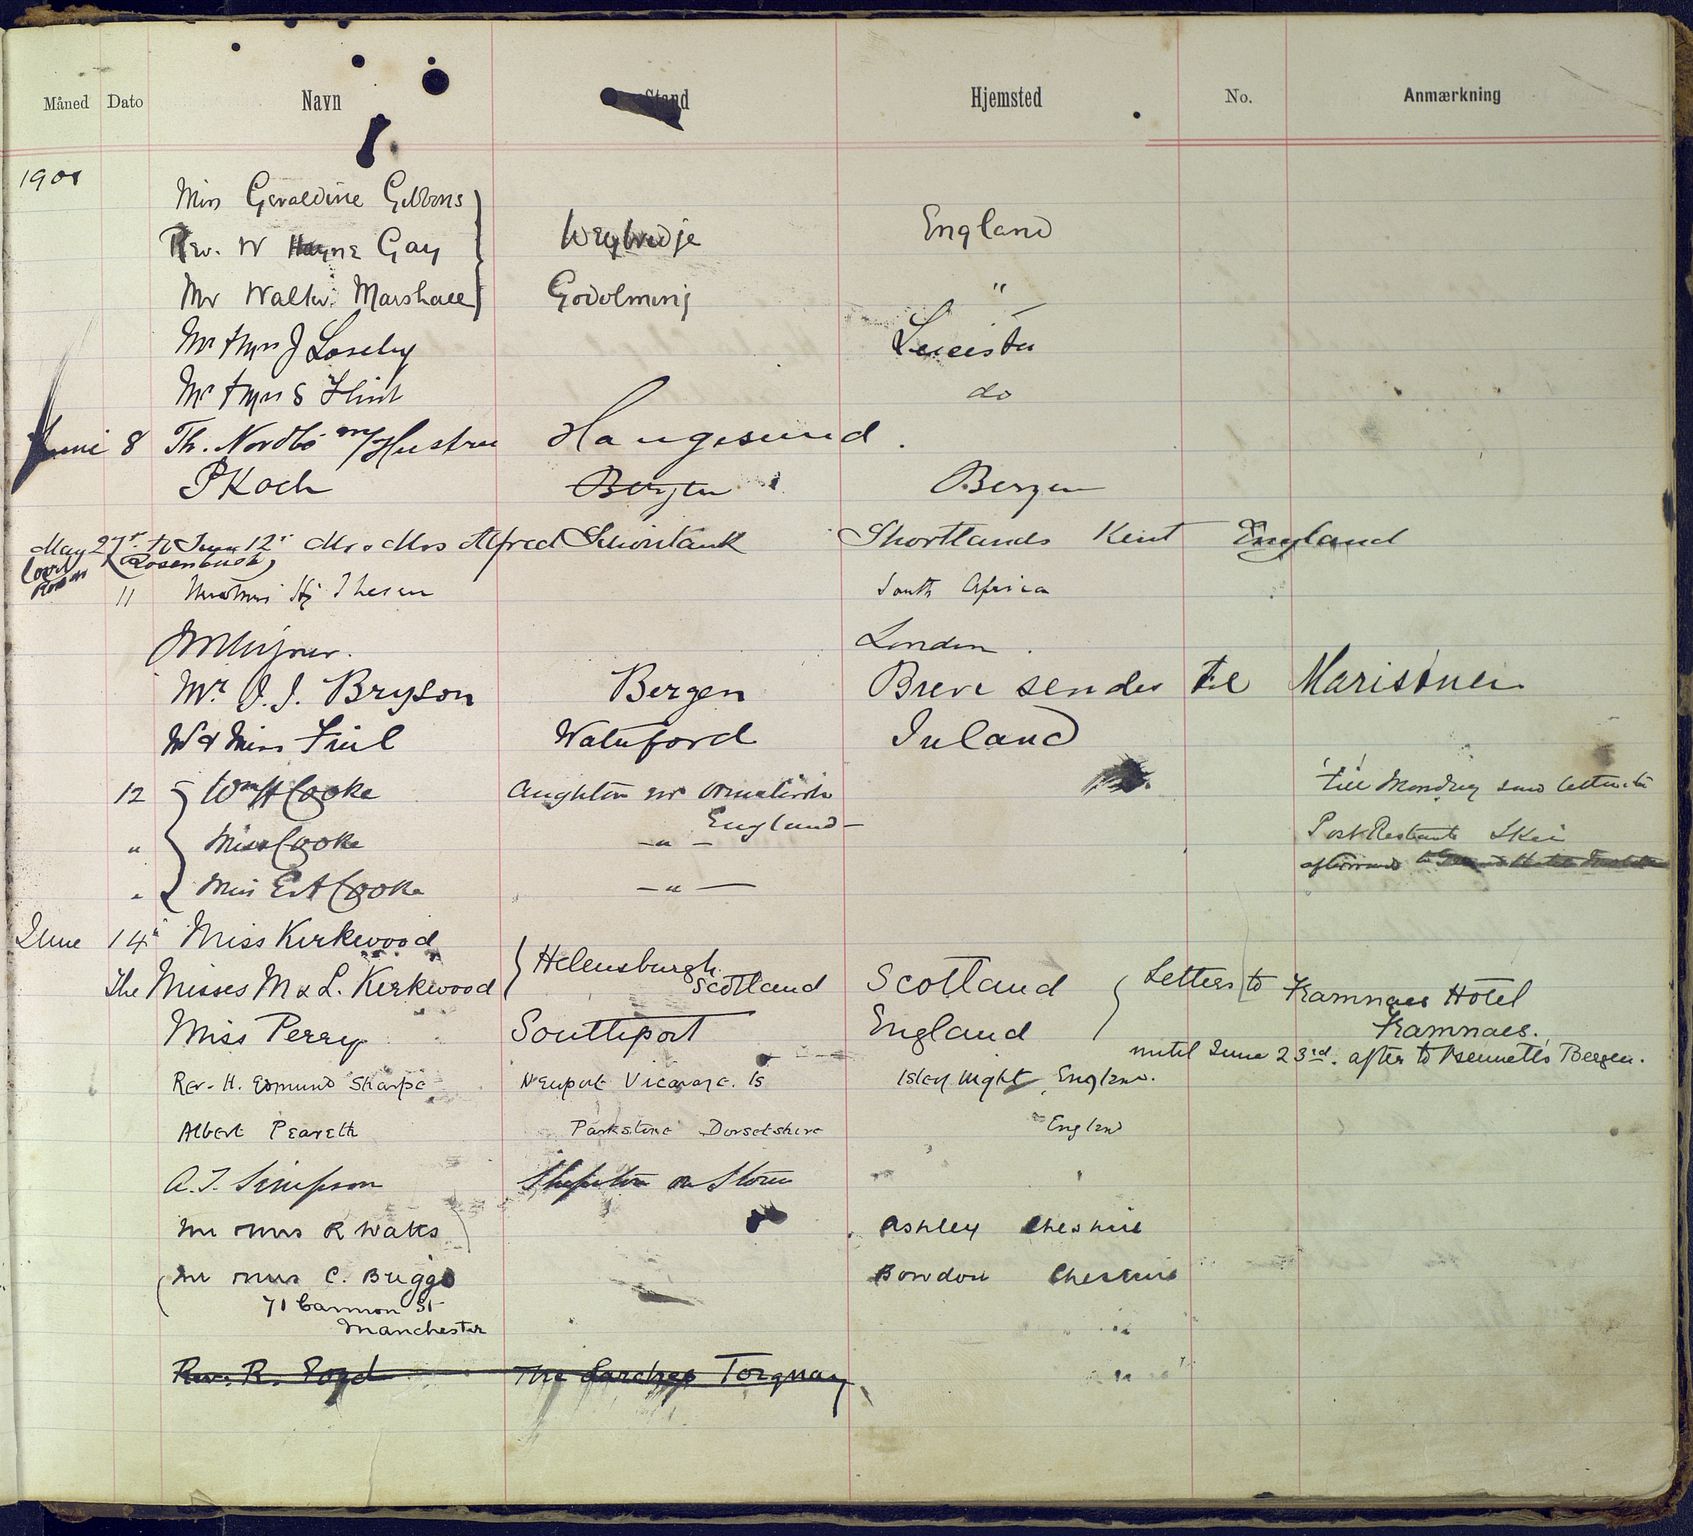 Måned Dato Navn Stand Hjemsted No. Anmærkning
1901
Miss Geraldine Gibbons
Rev. W Hayne Gay Weybridge England
Mr Walter Marshall Godalming "
Mr & Mrs J Loseby Leicester
Mr & Mrs S Flint do
Juni 8 Th. Nordbö m/Hustru Haugesund.
P Koch Bergen Bergen
May 27 to June 12 Mr & Mrs Alfred Shortlands Kent England
(Rosenbush)
11 Thesen South Africa
London.
Mr J. J. Bryson Bergen Breve sendes til Maristuen
Mr & Miss Waterford Ireland
12 Wm H Cooke Aughton nr Ormskirk 'till Monday send letters to
England
" Miss Cooke — " — Post Restante Skei
" Miss E A Cooke — " — afterwards to
June 14 Miss Kirkwood Helensburgh
The Misses M & L. Kirkwood Scotland Scotland Letters to Framnaes Hotel
Miss Perry Southport England Framnaes.
until June 23rd. after to Bennetts Bergen.
Rev. H. Edmund Sharpe Newport Vicarage. Is Isle of Wight, England.
Albert Peareth Parkstone Dorsetshire England
A. T. Simpson on Stour "
Mr & Mrs R Watts Ashley Cheshire
Mr & Mrs C. Briggs Bowdon Cheshire
71 Cannon St
Manchester "
Rev. R. The Larches Torquay "